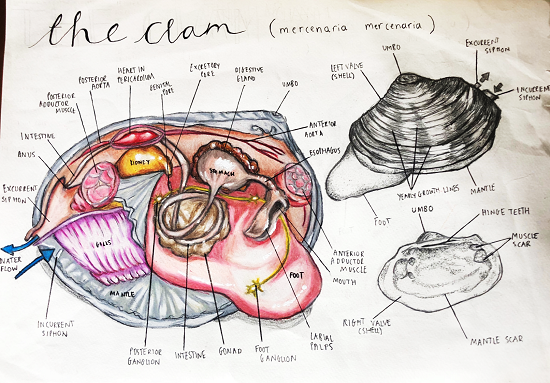 the clam (mercenaria mercenaria)
POSTERIOR
ADDUCTOR
MUSCLE
POSTERIOR
AORTA
HEART IN
PERICARDIUM
GENITAL
PORE
EXCRETORY
PORE
DIGESTIVE
GLAND
UMBO
ANTERIOR
AORTA
ESOPHAGUS
INTESTINE
ANUS
EXCURRENT
SIPHON
WATER
FLOW
INCURRENT
SIPHON
KIDNEY
STOMACH
GILLS
MANTLE
FOOT
POSTERIOR
GANGLION
INTESTINE
GONAD
FOOT
GANGLION
LABIAL
PALPS
MOUTH
ANTERIOR
ADDUCTOR
MUSCLE
UMBO
LEFT VALVE
(SHELL)
EXCURRENT
SIPHON
INCURRENT
SIPHON
YEARLY GROWTH LINES
MANTLE
FOOT
UMBO
HINGE TEETH
MUSCLE
SCAR
RIGHT VALVE
(SHELL)
MANTLE SCAR